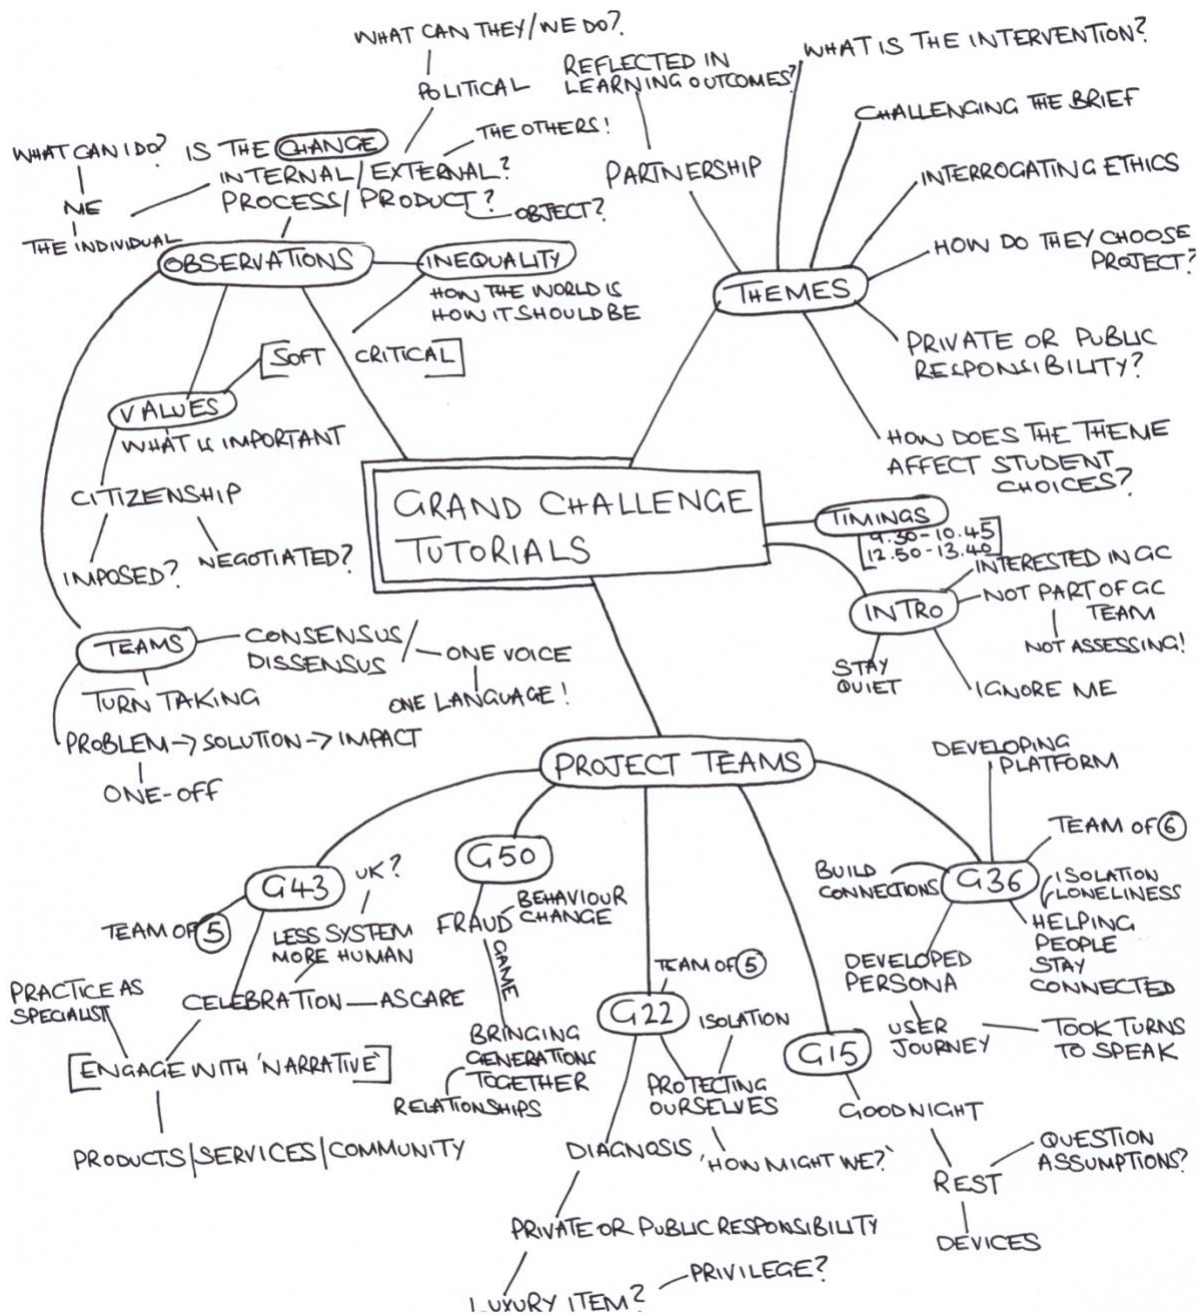 WHAT CAN THEY/WE DO?
POLITICAL
WHAT CAN I DO?
IS THE CHANGE
INTERNAL/EXTERNAL?
PROCESS/PRODUCT?
THE OTHERS!
OBJECT?
ME
THE INDIVIDUAL
OBSERVATIONS
INEQUALITY
HOW THE WORLD IS
HOW IT SHOULD BE
[SOFT CRITICAL]
VALUES
WHAT IS IMPORTANT
CITIZENSHIP
IMPOSED?
NEGOTIATED?
TEAMS
CONSENSUS/
DISSENSUS
ONE VOICE
ONE LANGUAGE!
TURN TAKING
PROBLEM -> SOLUTION -> IMPACT
ONE-OFF
REFLECTED IN
LEARNING OUTCOMES?
PARTNERSHIP
WHAT IS THE INTERVENTION?
CHALLENGING THE BRIEF
INTERROGATING ETHICS
HOW DO THEY CHOOSE
PROJECT?
THEMES
PRIVATE OR PUBLIC
RESPONSIBILITY?
HOW DOES THE THEME
AFFECT STUDENT
CHOICES?
GRAND CHALLENGE
TUTORIALS
TIMINGS
[9.30-10.45
12.50-13.40]
INTRO
INTERESTED IN GC
NOT PART OF GC
TEAM
NOT ASSESSING!
STAY
QUIET
IGNORE ME
PROJECT TEAMS
G43
TEAM OF 5
UK?
LESS SYSTEM
MORE HUMAN
CELEBRATION — AS CARE
PRACTICE AS
SPECIALIST
[ENGAGE WITH 'NARRATIVE']
PRODUCTS/SERVICES/COMMUNITY
G50
FRAUD
BEHAVIOUR
CHANGE
GAME
BRINGING
GENERATIONS
TOGETHER
RELATIONSHIPS
G22
TEAM OF 5
ISOLATION
PROTECTING
OURSELVES
'HOW MIGHT WE?'
DIAGNOSIS
PRIVATE OR PUBLIC RESPONSIBILITY
LUXURY ITEM?
PRIVILEGE?
G15
GOODNIGHT
REST
QUESTION
ASSUMPTIONS?
DEVICES
DEVELOPING
PLATFORM
TEAM OF 6
BUILD
CONNECTIONS
G36
ISOLATION
LONELINESS
HELPING
PEOPLE
STAY
CONNECTED
DEVELOPED
PERSONA
USER
JOURNEY
TOOK TURNS
TO SPEAK